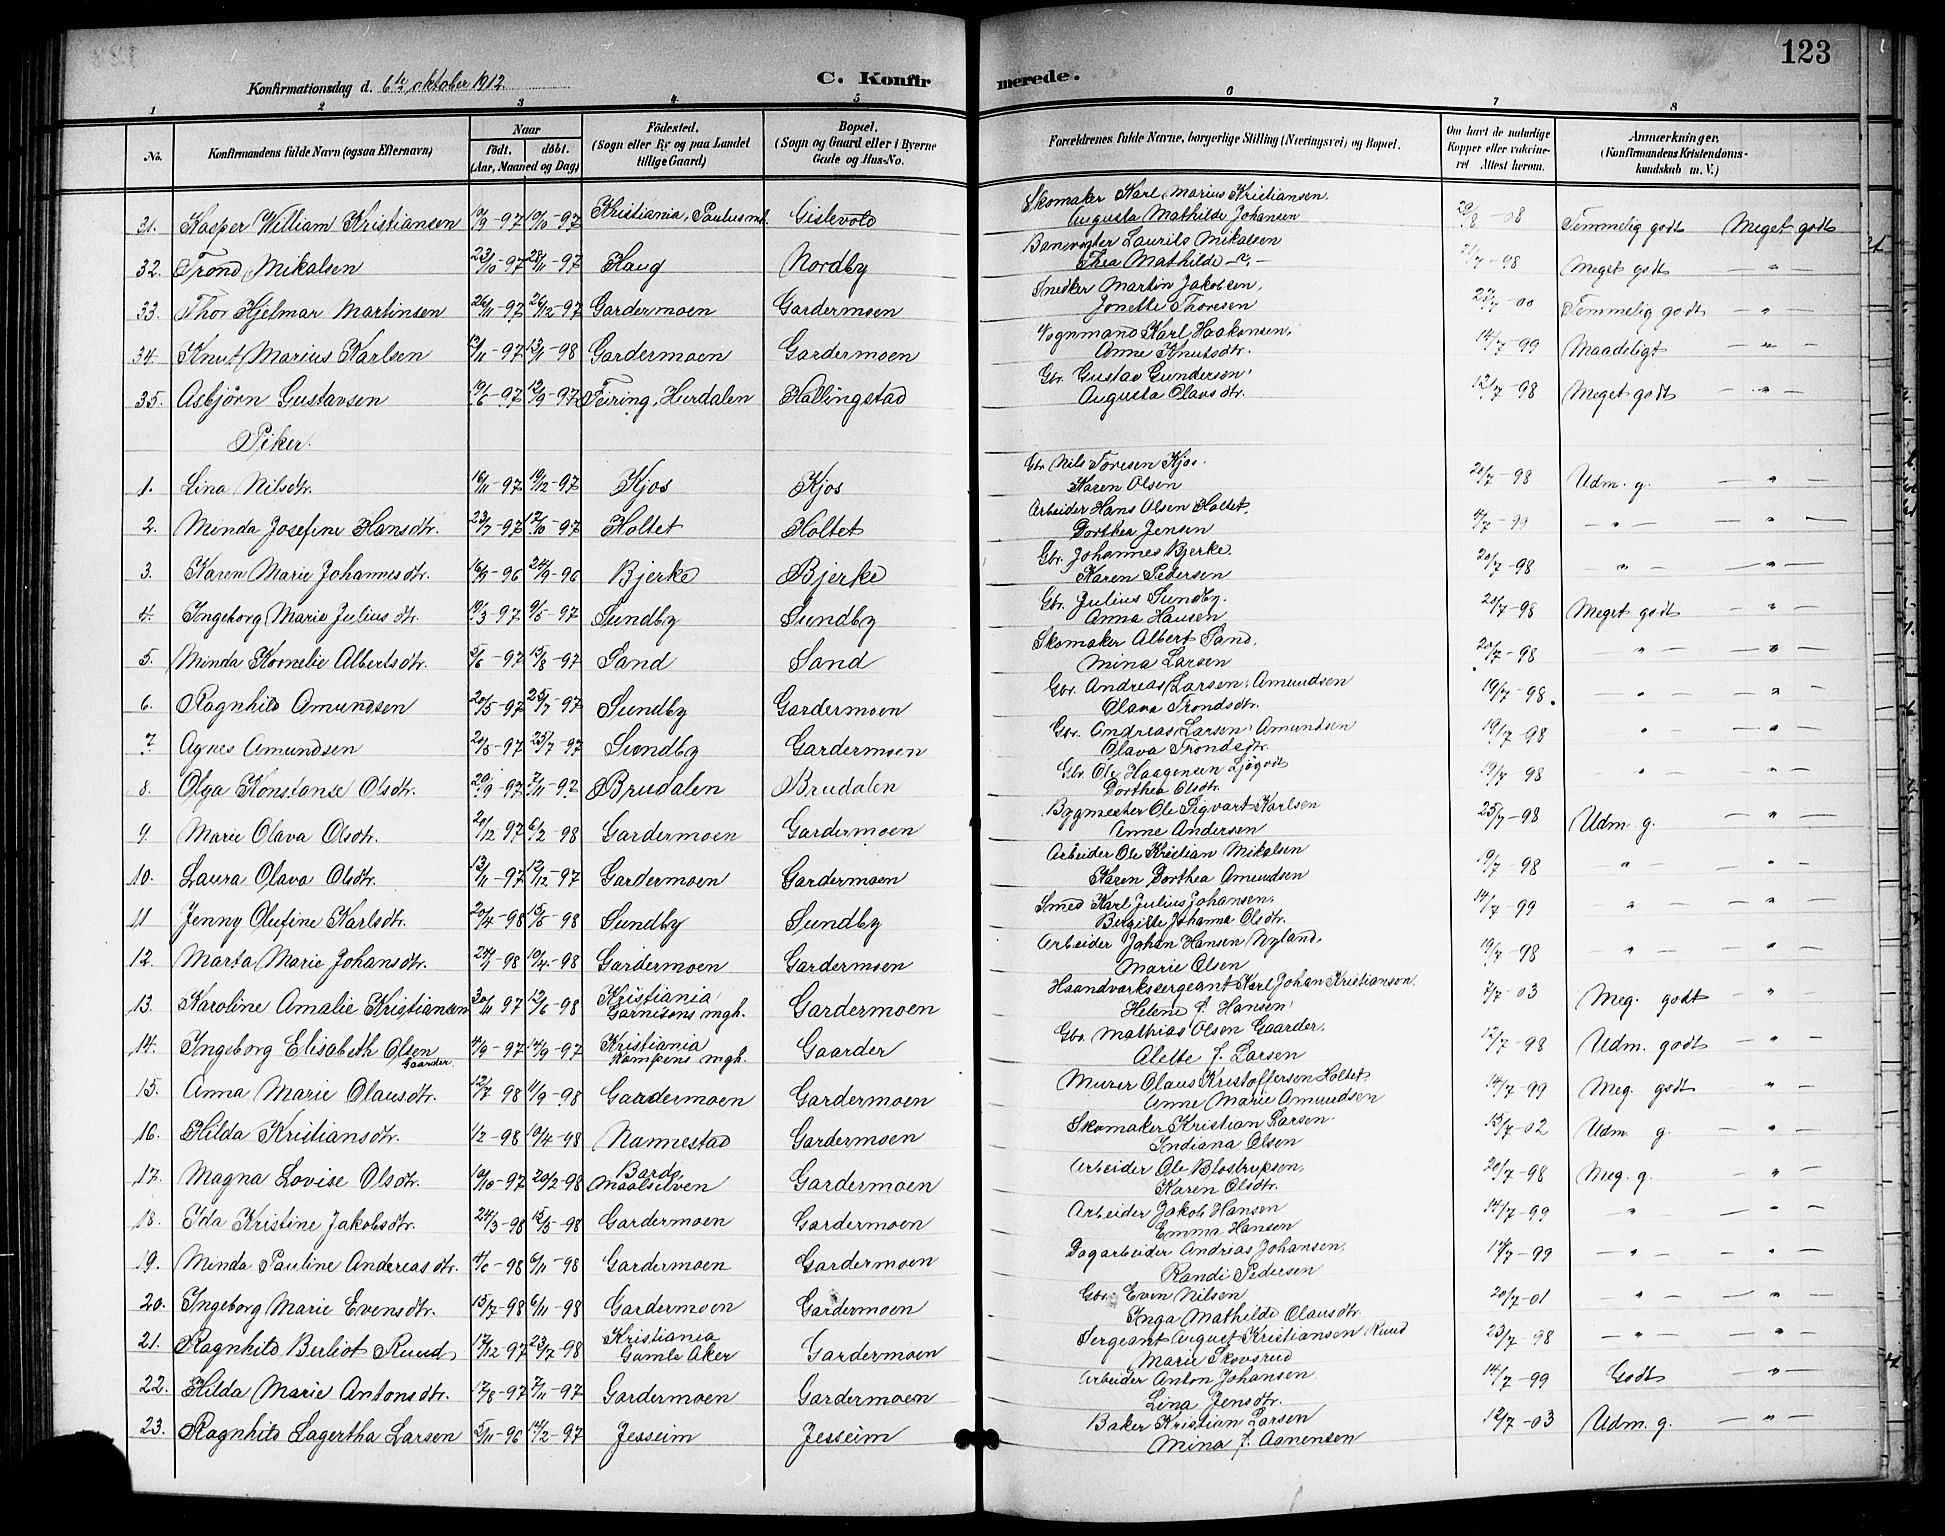 123
Konfirmationsdag d. 6te oktober 1912.
C. Konfirmerede.
1 2 3 4 5 6 7 8
No. Konfirmandens fulde Navn (ogsaa Efternavn) Naar født. døbt. (Aar, Maaned og Dag) Födested. (Sogn eller By og paa Landet tillige Gaard) Bopæl. (Sogn og Gaard eller i Byerne Gade og Hus-No. Forældrenes fulde Navne, borgerlige Stilling (Næringsvei) og Bopæl. Om havt de naturlige Kopper eller vakcineret Attest herom. Anmærkninger, (Konfirmandens Kristendomskundskab m. V.)
31. Kasper William Kristiansen 10/9-97 10/10-97 Kristiania, Paulus mh. Gislevold Skomaker Karl Marius Kristiansen, Augusta Mathilde Johansen 20/8-08 Temmelig godt Meget godt
32. Trond Mikalsen 23/10-97 28/11-97 Haug Nordby Banevogter Laurits Mikalsen Thea Mathilde -"- 21/7-98 Meget godt -"-
33. Thor Hjelmar Martinsen 26/11-97 26/12-97 Gardermoen Gardermoen Snedker Martin Jakobsen, Jonette Thoresen 27/7-00 Temmelig godt -"-
34. Knut Marius Karlsen 12/11-97 13/11-98 Gardermoen Gardermoen Vognmand Karl Haakonsen, Anne Knutsdtr. 14/7-99 Maadeligt -"-
35. Asbjørn Gustavsen 19/6-97 12/9-97 Feiring, Hurdalen Hallingstad Gbr. Gustav Gundersen, Augusta Olavsdtr. 12/7-98 Meget godt -"-
Piker.
1. Lina Nilsdtr. 16/11-97 19/12-97 Kjos Kjos Gbr. Nils Toresen Kjos. Karen Olsen 20/7-98 Udm. g. -"-
2. Minda Josefine Hansdtr. 23/7-97 17/10-97 Holtet Holtet Arbeider Hans Olsen Holtet, Dorthea Jensen 4/7-99 -"- -"-
3. Karen Marie Johannesdtr. 16/9-96 24/9-96 Bjerke Bjerke Gbr. Johannes Bjerke. Karen Pedersen 20/7-98 -"- -"-
4. Ingeborg Marie Juliusdtr. 19/3-97 9/5-97 Sundby Sundby Gbr. Julius Sundby. Anna Hansen 20/7-98 Meget godt -"-
5. Minda Kornelie Albertsdtr. 5/6-97 15/8-97 Sand Sand Skomaker Albert Sand, Mina Larsen 20/7-98 -"- -"-
6. Ragnhild Amundsen 20/5-97 25/7-97 Sundby Gardermoen Gbr. Andreas Larsen Amundsen Olava Trondsdtr. 19/7-98. -"- -"-
7. Agnes Amundsen 20/5-97 25/7-97 Sundby Gardermoen Gbr. Andreas Larsen Amundsen Olava Trondsdtr. 19/7-98 " -"-
8. Olga Konstanse Olsdtr. 20/9-97 7/11-97 Brudalen Brudalen Gbr. Ole Haagensen Ljøgodt Dorthea Olsdtr. 19/7-98 " -"-
9. Marie Olava Olsdtr. 20/12 97 6/2-98 Gardermoen Gardermoen Bygmester Ole Sigvart Karlsen Anne Andersen 25/7-98 Udm. g. -"-
10. Laura Olava Olsdtr. 13/11-97 12/12-97 Gardermoen Gardermoen Arbeider Ole Kristian Mikalsen Karen Dorthea Amundsen 19/7-98 -"- -"-
11 Jenny Olufine Karlsdtr. 20/4-98 15/5-98 Sundby Sundby Smed Karl Julius Johansen, Bergitte Johanne Olsdtr. 14/7-99 -"- -"-
12. Marta Marie Johansdtr. 24/1-98 10/4-98 Gardermoen Gardermoen Arbeider Johan Hansen Nyland, Marie Olsen 19/7-98 -"- -"-
13. Karoline Amalie Kristiansen 30/11-97 12/6-98 Kristiania Garnisons mgh. Gardermoen Haandverkssergeant Karl Johan Kristiansen, Helene f. Hansen 7/7-03 Meg. godt -"-
14. Ingeborg Elisabeth Olsen Gaarder. 4/9-97 14/9-97 Kristiania Kampens mgh. Gaarder Gbr. Mathias Olsen Gaarder, Alette f. Larsen 12/7-98 Udm. godt -"-
15. Anna Marie Olausdtr. 12/7 98 11/9-98 Gardermoen Gardermoen Murer Olaus Kristoffersen Holtet. Anne Marie Amundsen 14/7-99 Meg. godt "-
16. Hilda Kristiansdtr. 1/2-98 10/4-98 Nannestad Gardermoen Skomaker Kristian Larsen Indiana Olsen 15/7-02 Udm. g. -"-
17. Magna Lovise Olsdtr. 10/10-97 20/2-98 Bardo Maalselven Gardermoen Arbeider Ole Blostrupsen, Karen Olsdtr. 20/7-98 Meg. g. -"-
18. Ida Kristine Jakobsdtr. 24/3-98 15/5-98 Gardermoen Gardermoen Arbeider Jakob Hansen Emma Hansen 14/7-99 -"- -"-
19. Minda Pauline Andreasdtr. 4/6-98 6/11-98 Gardermoen Gardermoen Dagarbeider Andrias Johansen, Randi Pedersen 14/7-99 -"- -"-
20. Ingeborg Marie Evensdtr. 15/7-98 6/11-98 Gardermoen Gardermoen Gbr. Even Nilsen Inga Mathilde Olausdtr. 20/7-01 -"- -"-
21. Ragnhild Berliot Ruud 17/12-97 23/7-98 Kristiania Gamle Aker Gardermoen Sergeant August Kristiansen Ruud Marie Skovsrud 23/7-98 -"- -"-
22. Hilda Marie Antonsdtr. 17/8-97 7/11-97 Gardermoen Gardermoen Arbeider Anton Johansen. Lina Jensdtr. 14/7-99 Godt -"-
23. Ragnhild Lagertha Larsen 5/11-96 14/2-97 Jesseim Jesseim Baker Kristian Larsen Mina f. Aanensen 12/7-03 Udm. g. -"-